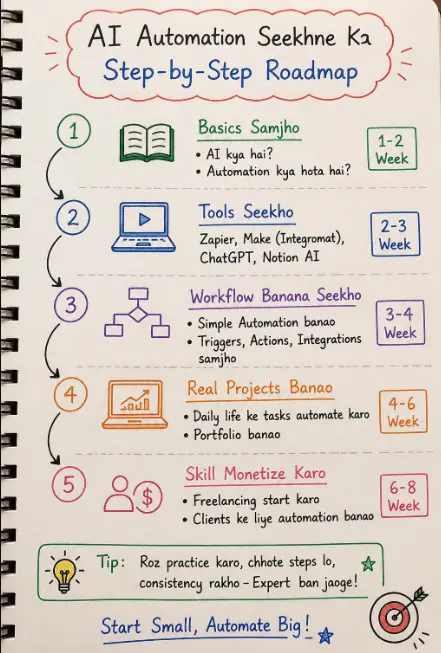 AI Automation Seekhne Ka
Step-by-Step Roadmap
1
Basics Samjho
• AI kya hai?
• Automation kya hota hai?
1-2
Week
2
Tools Seekho
Zapier, Make (Integromat),
ChatGPT, Notion AI
2-3
Week
3
Workflow Banana Seekho
• Simple Automation banao
• Triggers, Actions, Integrations
samjho
3-4
Week
4
Real Projects Banao
• Daily life ke tasks automate karo
• Portfolio banao
4-6
Week
5
$
Skill Monetize Karo
• Freelancing start karo
• Clients ke liye automation banao
6-8
Week
Tip: Roz practice karo, chhote steps lo,
consistency rakho - Expert ban jaoge!
Start Small, Automate Big!